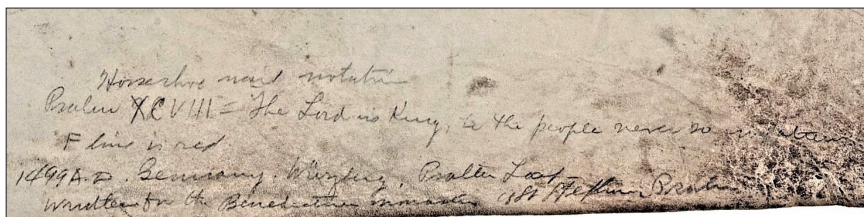 Horseshoe nail notation
Psalm XCVIII = The Lord is King, be the people never so impatient
F line is red
1499 A.D. Germany. Würzburg, Psalter Leaf
Written for the Benedictine monastery St Stephen